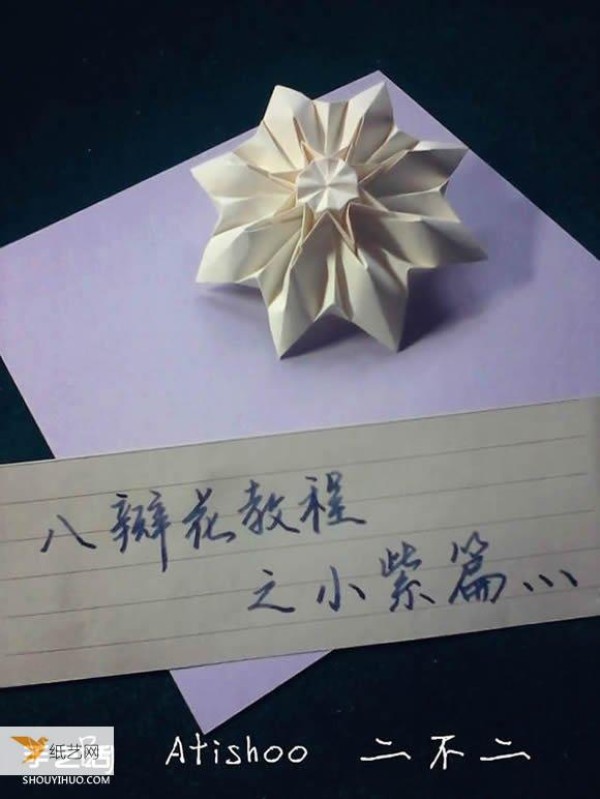 八瓣花教程
之小紫篇...
Atishoo 二不二
纸艺网
SHOUYIHUO.COM